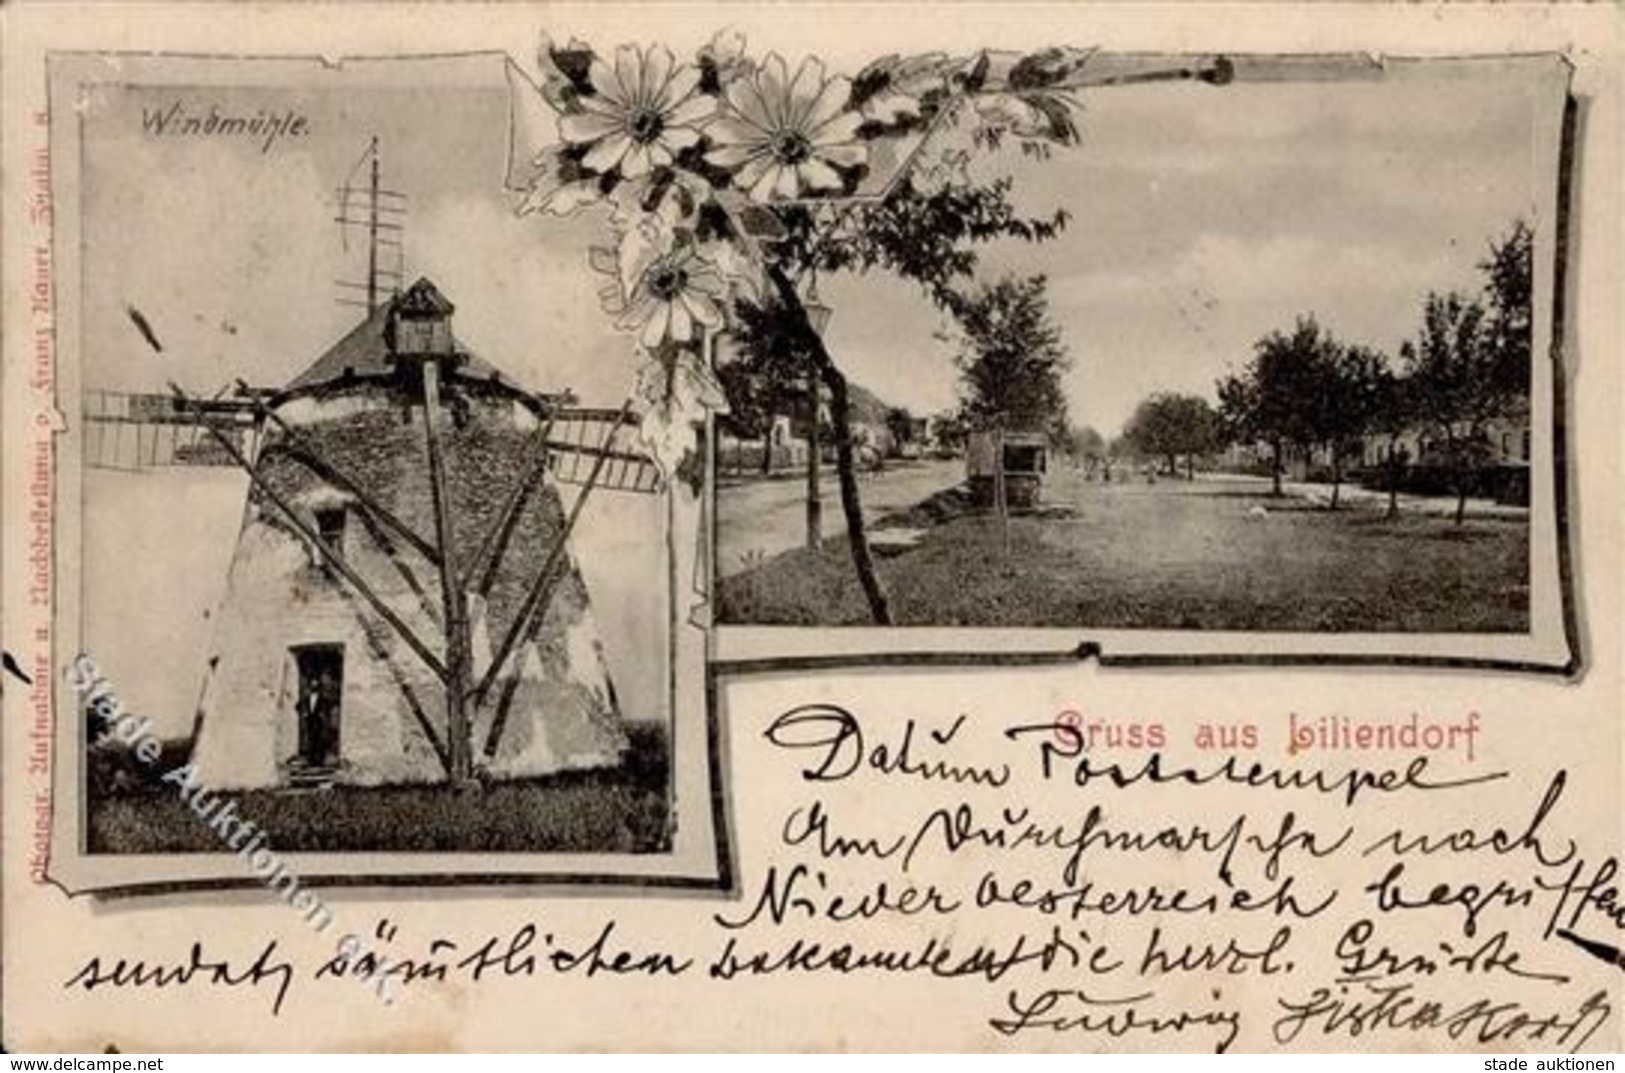 Windmühle.
Photogr. Aufnahme u. Nachbestellung v. Franz Nauer, Znaim
Gruss aus Liliendorf
Datum Poststempel
Am Durchmarsche nach
Nieder Oesterreich begriffen
sendet sämtlichen bekannten die herzl. Grüsse
Ludwig
Stade Auktionen e.K.
www.delcampe.net
stade auktionen